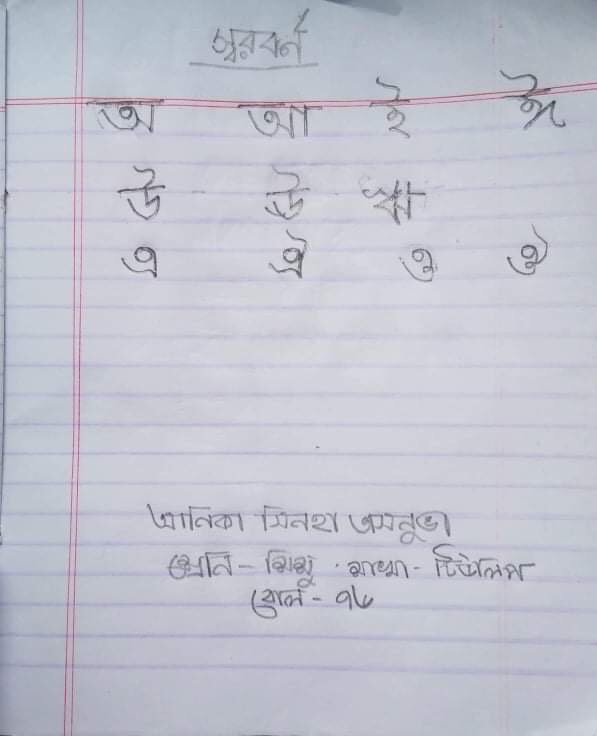 স্বরবর্ন
অ আ ই ঈ
উ ঊ ঋ
এ ঐ ও ঔ
আনিকা সিনহা
শ্রেনি - শিশু . শাখা - টিউলিপ
রোল - ৭৬